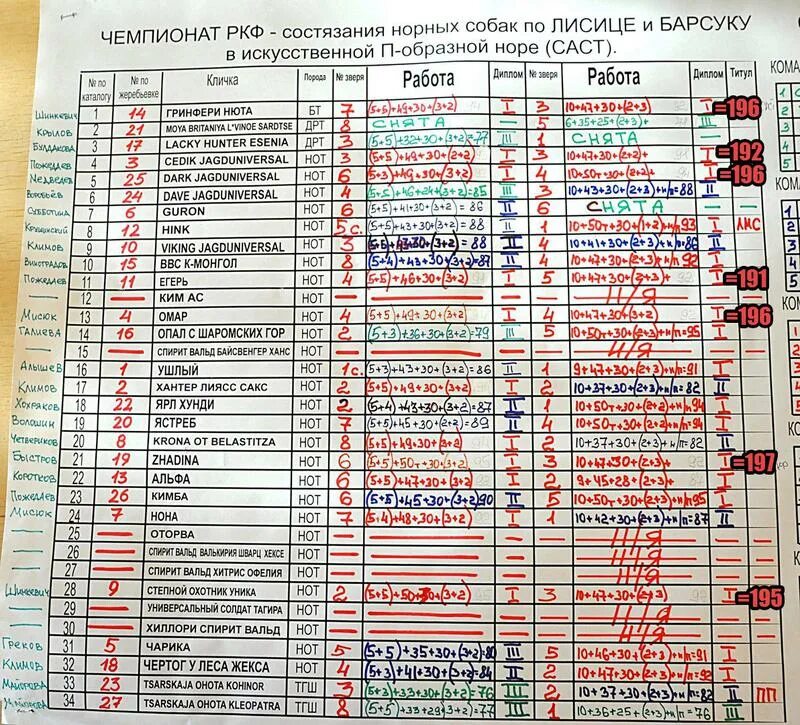 ЧЕМПИОНАТ РКФ - состязания норных собак по ЛИСИЦЕ и БАРСУКУ
в искусственной П-образной норе (САСТ).
№ по каталогу № по жеребьевке Кличка Порода № зверя Работа Диплом № зверя Работа Диплом Титул
КОМА
Шинкевич 1 14 ГРИНФЕРИ НЮТА БТ 7 (5+5)+49+30+(3+2) I 3 10+47+30+(2+3) I =196
Крылов 2 21 MOYA BRITANIYA L*VINOE SARDTSE ДРТ 8 СНЯТА — 5 6+35+25+(2+3)+ III
Булдакова 3 17 LACKY HUNTER ESENIA ДРТ 3 (5+5)+32+30+(3+2)=77 III 1 СНЯТА —
Пожедаев 4 3 CEDIK JAGDUNIVERSAL НОТ 3 (5+5)+49+30+(2+2) I 3 10+47+30+(2+2)+ I =192
Медведев 5 25 DARK JAGDUNIVERSAL НОТ 6 (5+3)+49+30+(3+2) I 4 10+50т+30+(2+3)+ I =196
Воробьёв 6 24 DAVE JAGDUNIVERSAL НОТ 4 (5+5)+46+24+(3+2)=85 III 3 10+43+30+(2+3)+п=88 II
Субботина 7 6 GURON НОТ 6 (5+5)+41+30+(3+2)=86 II 6 СНЯТА —
8 12 HINK НОТ 5с. (5+5)+43+30+(3+2)=88 II 1 10+50т+30+(1+2)+н/п93 I ЛМС
Климов 9 10 VIKING JAGDUNIVERSAL НОТ 3 (5+5)+43+30+(3+2)=88 II 4 10+41+30+(2+3)+н/п=86 II
Виноградов 10 15 ВВС К-МОНГОЛ НОТ 8 (5+4)+43+30+(3+2)=87 II 4 10+47+30+(2+3)+н/п=92 I
Пожедаев 11 11 ЕГЕРЬ НОТ 4 (5+5)+46+30+(3+2) I 5 10+47+30+(2+3)+ I =191
— 12 — КИМ АС НОТ — — — — Н/Я —
Мисюк 13 4 ОМАР НОТ 4 (5+5)+49+30+(3+2) I 4 10+47+30+(3+2) I =196
Галиева 14 16 ОПАЛ С ШАРОМСКИХ ГОР НОТ 2 (5+3)+36+30+(3+2)=79 III 5 10+50т+30+(2+3)+н/п=95 I
— 15 — СПИРИТ ВАЛЬД БАЙСВЕНГЕР ХАНС НОТ — — — — Н/Я —
Алышев 16 1 УШЛЫЙ НОТ 1с. (5+3)+43+30+(3+2)=86 II 1 9+47+30+(2+3)+н/п=91 I
Климов 17 2 ХАНТЕР ЛИЯСС САКС НОТ 2 (5+5)+49+30+(3+2) I 2 10+37+30+(2+3)+н/п=82 II
Хохряков 18 22 ЯРЛ ХУНДИ НОТ 2 (5+4)+43+30+(3+2)=87 II 1 10+50т+30+(2+2)+н/п94 I
Волошин 19 20 ЯСТРЕБ НОТ 7 (5+5)+45+30+(2+2)=89 II 4 10+50т+30+(2+2)+н/п=94 I
Четвериков 20 8 KRONA OT BELASTITZA НОТ 8 (5+5)+49+30+(3+2) I 2 10+37+30+(2+3)+н/п=82 II
Быстров 21 19 ZHADINA НОТ 6 (5+5)+50т+30+(3+2) I 3 10+47+30+(2+3)+ I =197
Коротков 22 13 АЛЬФА НОТ 6 (5+5)+47+30+(3+2) I 2 9+45+28+(2+3)+ I
Пожедаев 23 26 КИМБА НОТ 6 (5+5)+45+30+(3+2)90 II 5 10+50т+30+(2+3)+н/п95 I
Мисюк 24 7 НОНА НОТ 7 (5+4)+48+30+(3+2) I 1 10+42+30+(2+3)+н/п=87 II
— 25 — ОТОРВА НОТ — — — — Н/Я —
— 26 — СПИРИТ ВАЛЬД ВАЛЬКИРИЯ ШВАРЦ ХЕКСЕ НОТ — — — — Н/Я —
— 27 — СПИРИТ ВАЛЬД ХИТРИС ОФЕЛИЯ НОТ — — — — Н/Я —
Шинкевич 28 9 СТЕПНОЙ ОХОТНИК УНИКА НОТ 2 (5+5)+50+30+(3+2) I 3 10+47+30+(2+3) I =195
— 29 — УНИВЕРСАЛЬНЫЙ СОЛДАТ ТАГИРА НОТ — — — — Н/Я —
— 30 — ХИЛЛОРИ СПИРИТ ВАЛЬД НОТ — — — — Н/Я —
Греков 31 5 ЧАРИКА НОТ 5 (5+5)+35+30+(3+2)=80 III 5 10+46+30+(2+3)+н/п=91 I
Климов 32 18 ЧЕРТОГ У ЛЕСА ЖЕКСА НОТ 4 (5+3)+41+30+(3+2)=84 II 2 10+47+30+(2+3)+н/п=92 I
Майорова 33 23 TSARSKAJA OHOTA KOHINOR ТГШ 3 (5+3)+33+30+(3+2)=76 III 2 10+37+30+(2+3)+н/п=82 II ПП
34 27 TSARSKAJA OHOTA KLEOPATRA ТГШ 8 (5+5)+33+29+(3+2)=77 III 1 10+36+25+(2+3)+н/п=76 III